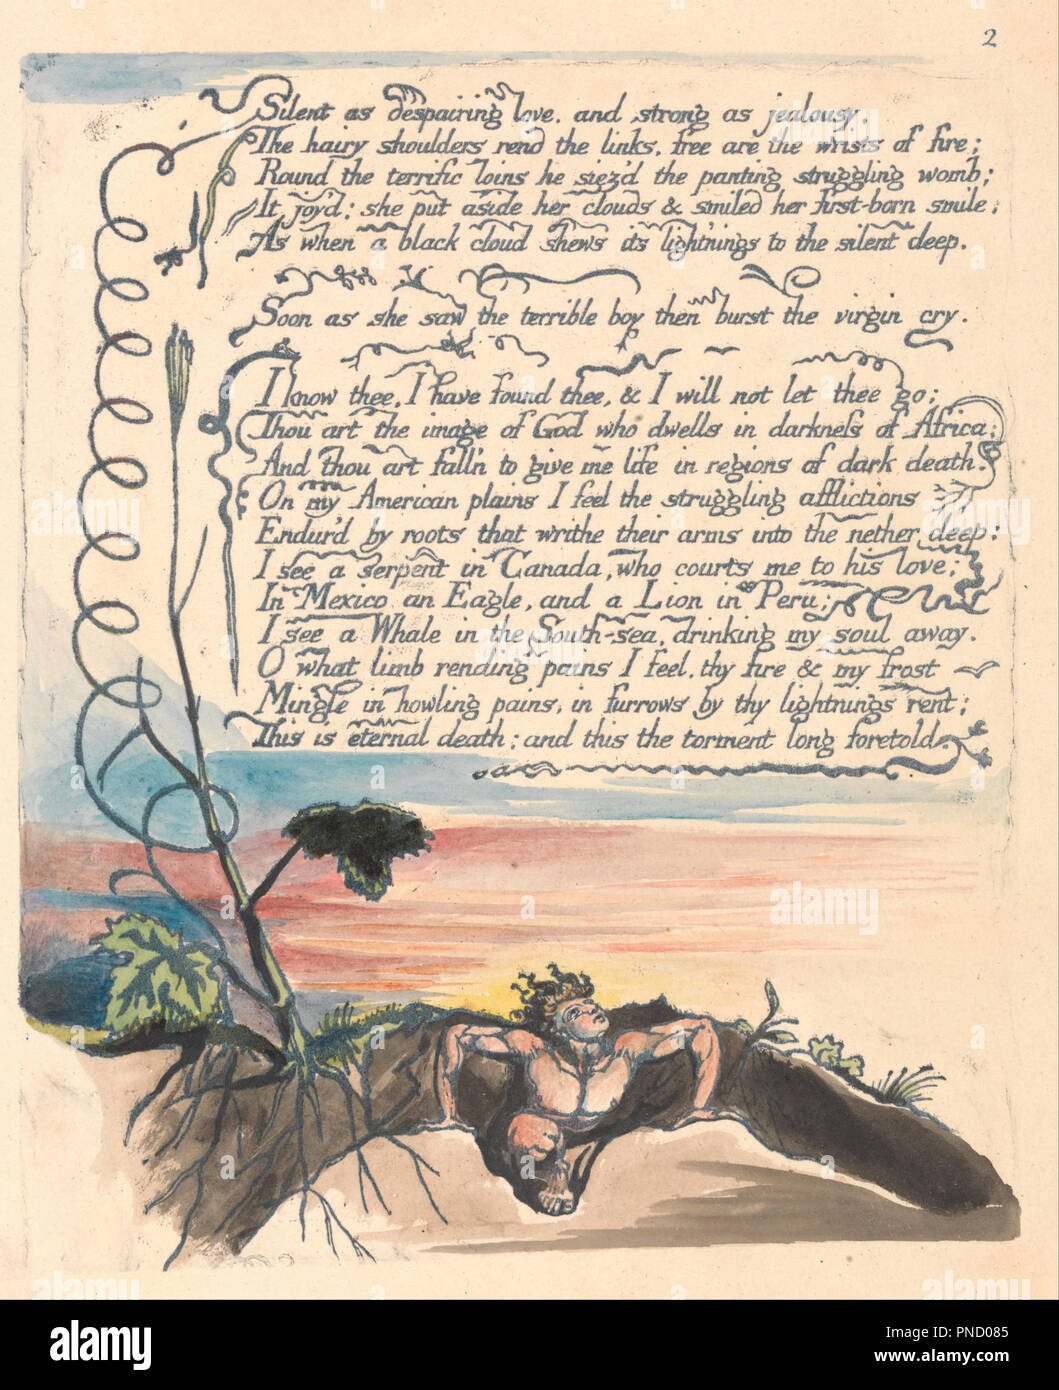 2
Silent as despairing love, and strong as jealousy,
The hairy shoulders rend the links, free are the wrists of fire;
Round the terrific loins he siez'd the panting struggling womb;
It joy'd: she put aside her clouds & smiled her first-born smile;
As when a black cloud shews its light'nings to the silent deep.
Soon as she saw the terrible boy then burst the virgin cry.
I know thee, I have found thee, & I will not let thee go;
Thou art the image of God who dwells in darkness of Africa;
And thou art fall'n to give me life in regions of dark death.
On my American plains I feel the struggling afflictions
Endur'd by roots that writhe their arms into the nether deep:
I see a serpent in Canada, who courts me to his love;
In Mexico an Eagle, and a Lion in Peru;
I see a Whale in the South-sea, drinking my soul away.
O what limb rending pains I feel, thy fire & my frost
Mingle in howling pains, in furrows by thy lightnings rent;
This is eternal death; and this the torment long foretold.
alamy
Image ID: PND085
www.alamy.com